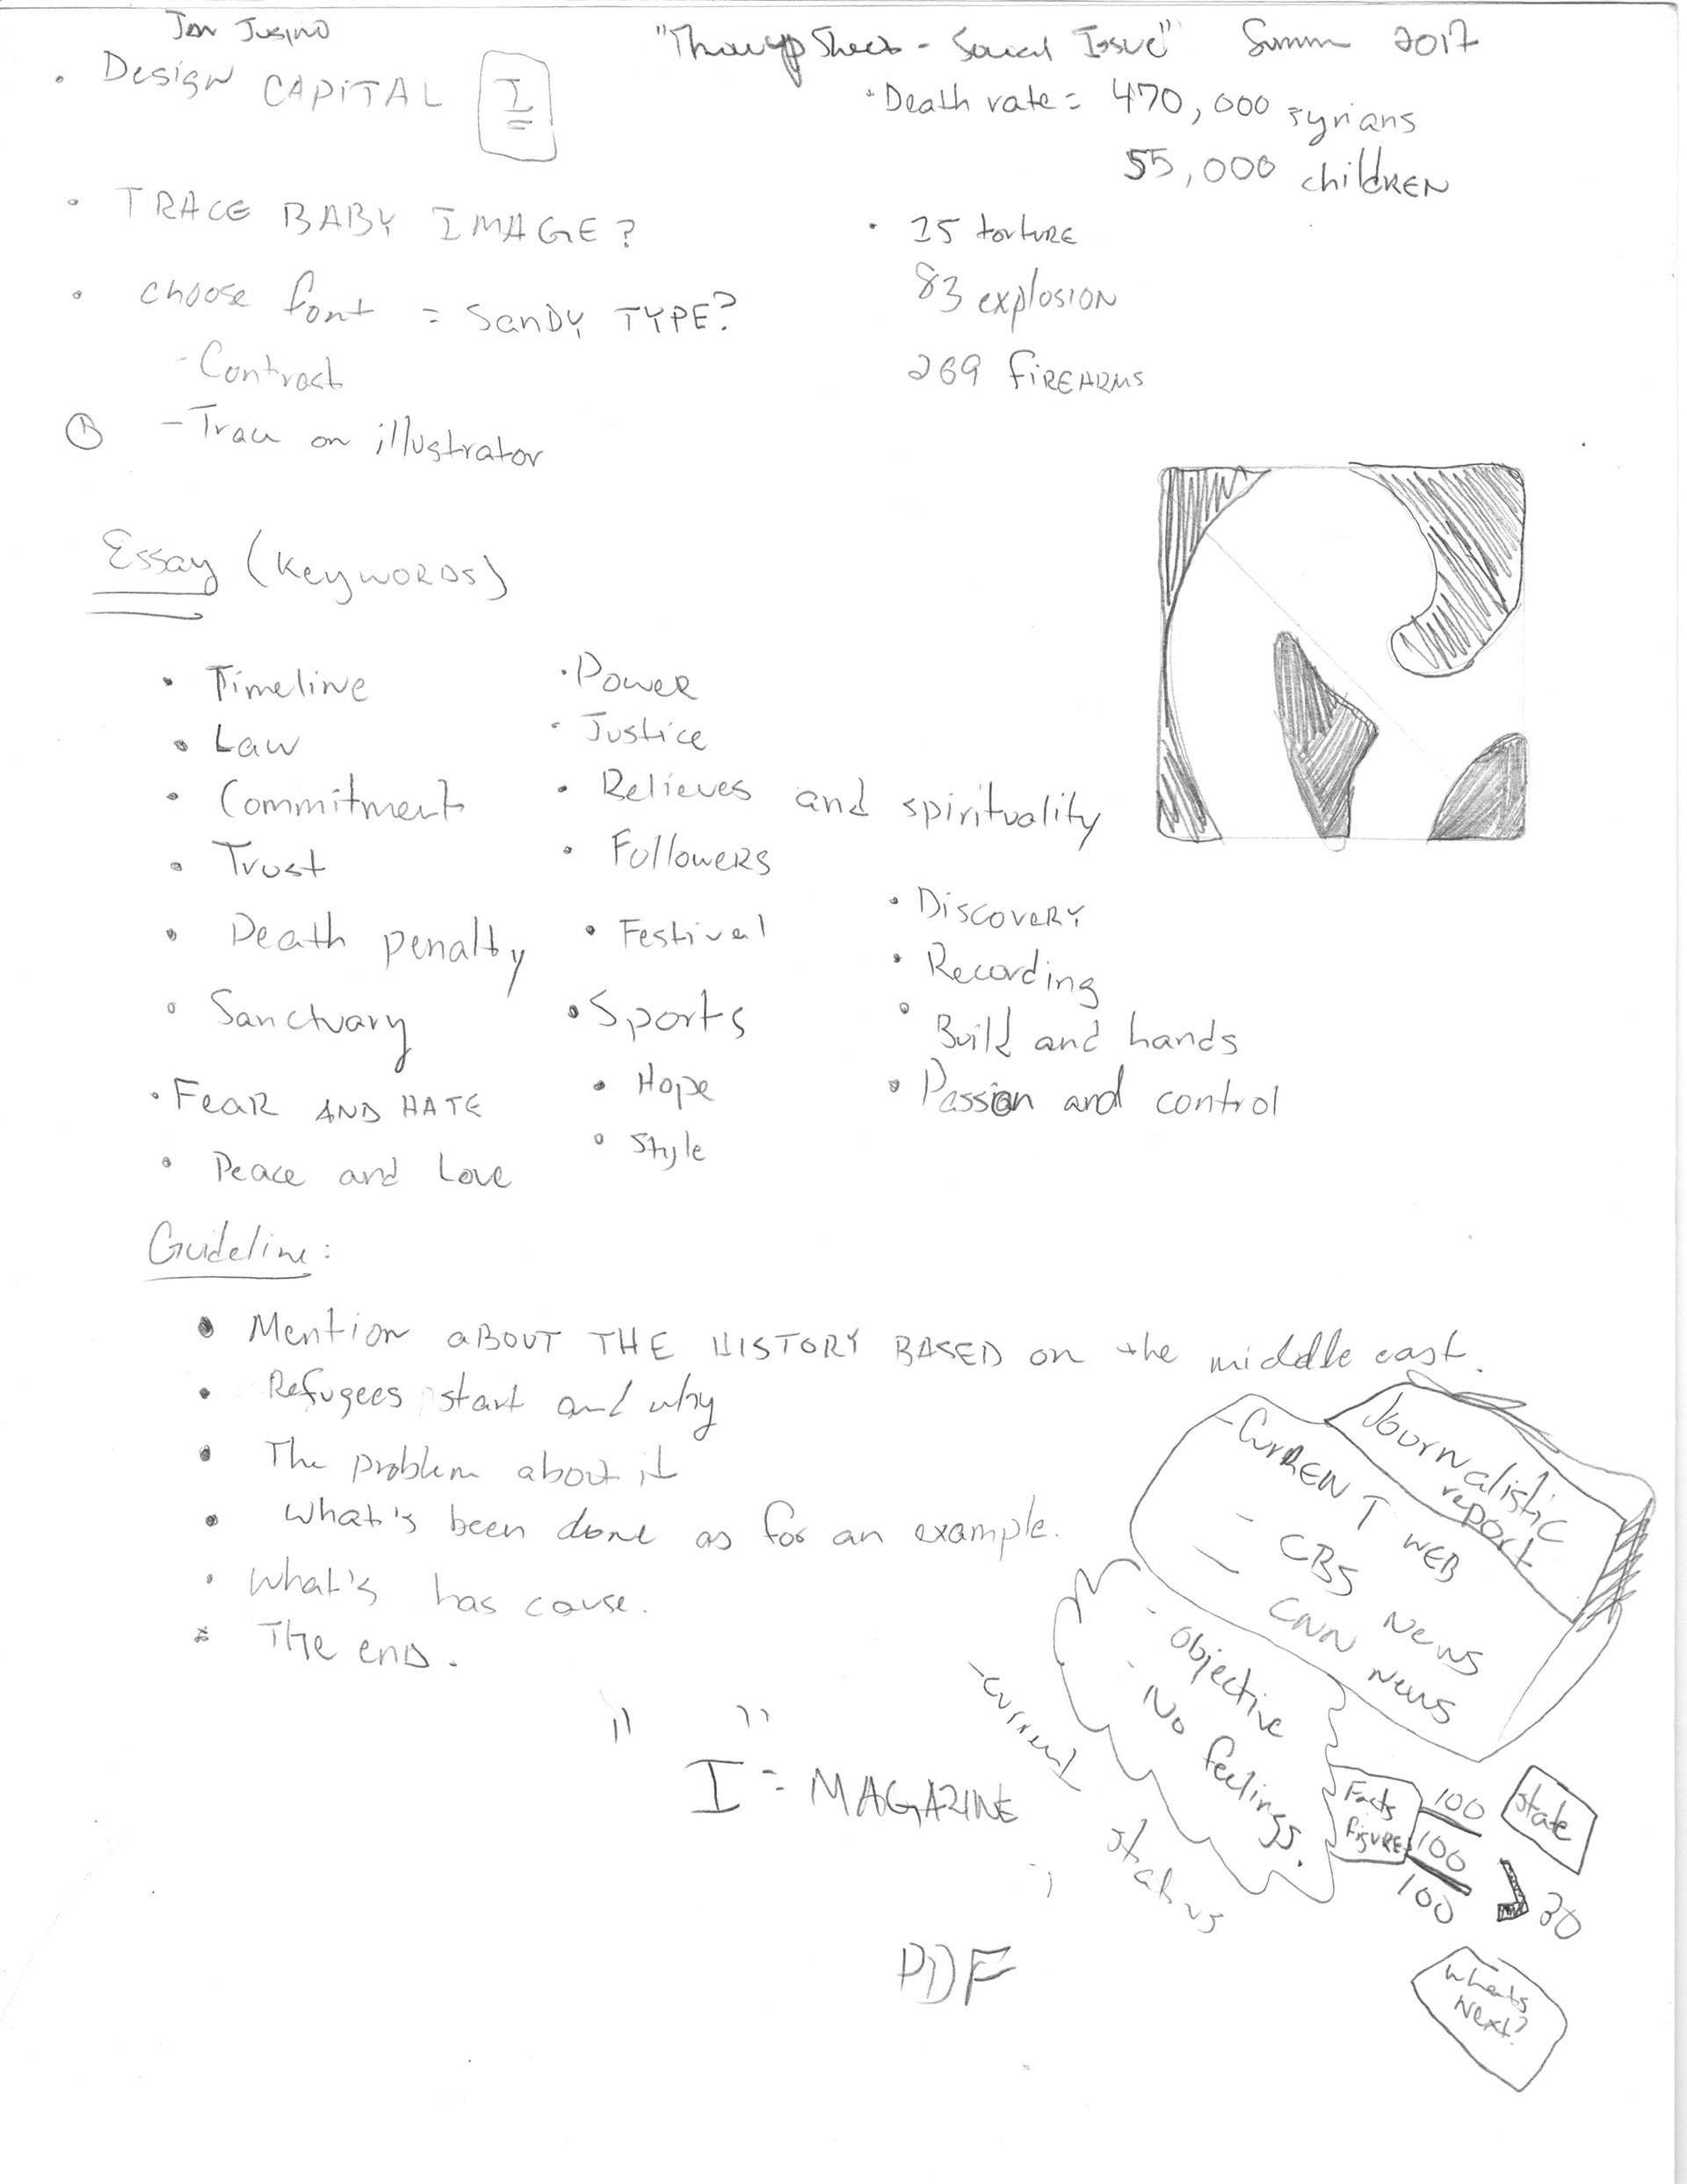 Jan Jusino
"Though Sheet - Social Issue" Summ 2017
• Design CAPITAL I
• TRACE BABY IMAGE?
• choose font = SANDY TYPE?
- Contrast
- Trace on illustrator
• Death rate = 470,000 syrians
55,000 children
• 15 torture
83 explosion
269 firearms
Essay (keywords)
• Timeline
• Law
• Commitment
• Trust
• Death penalty
• Sanctuary
• Fear AND HATE
• Peace and Love
• Power
• Justice
• Believes and spirituality
• Followers
• Festival
• Sports
• Hope
• Style
• Discovery
• Recording
• Build and hands
• Passion and control
Guideline:
• Mention ABOUT THE HISTORY BASED on the middle east.
• Refugees start and why
• The problem about it
• What's been done as for an example.
• What's has cause.
• The end.
Journalistic
report
- Current WEB
- CBS News
- CNN News
- Objective
- No feelings.
- current
status
Facts
figures
100
100
100
State
30
What's
Next?
"I" = MAGAZINE
PDF